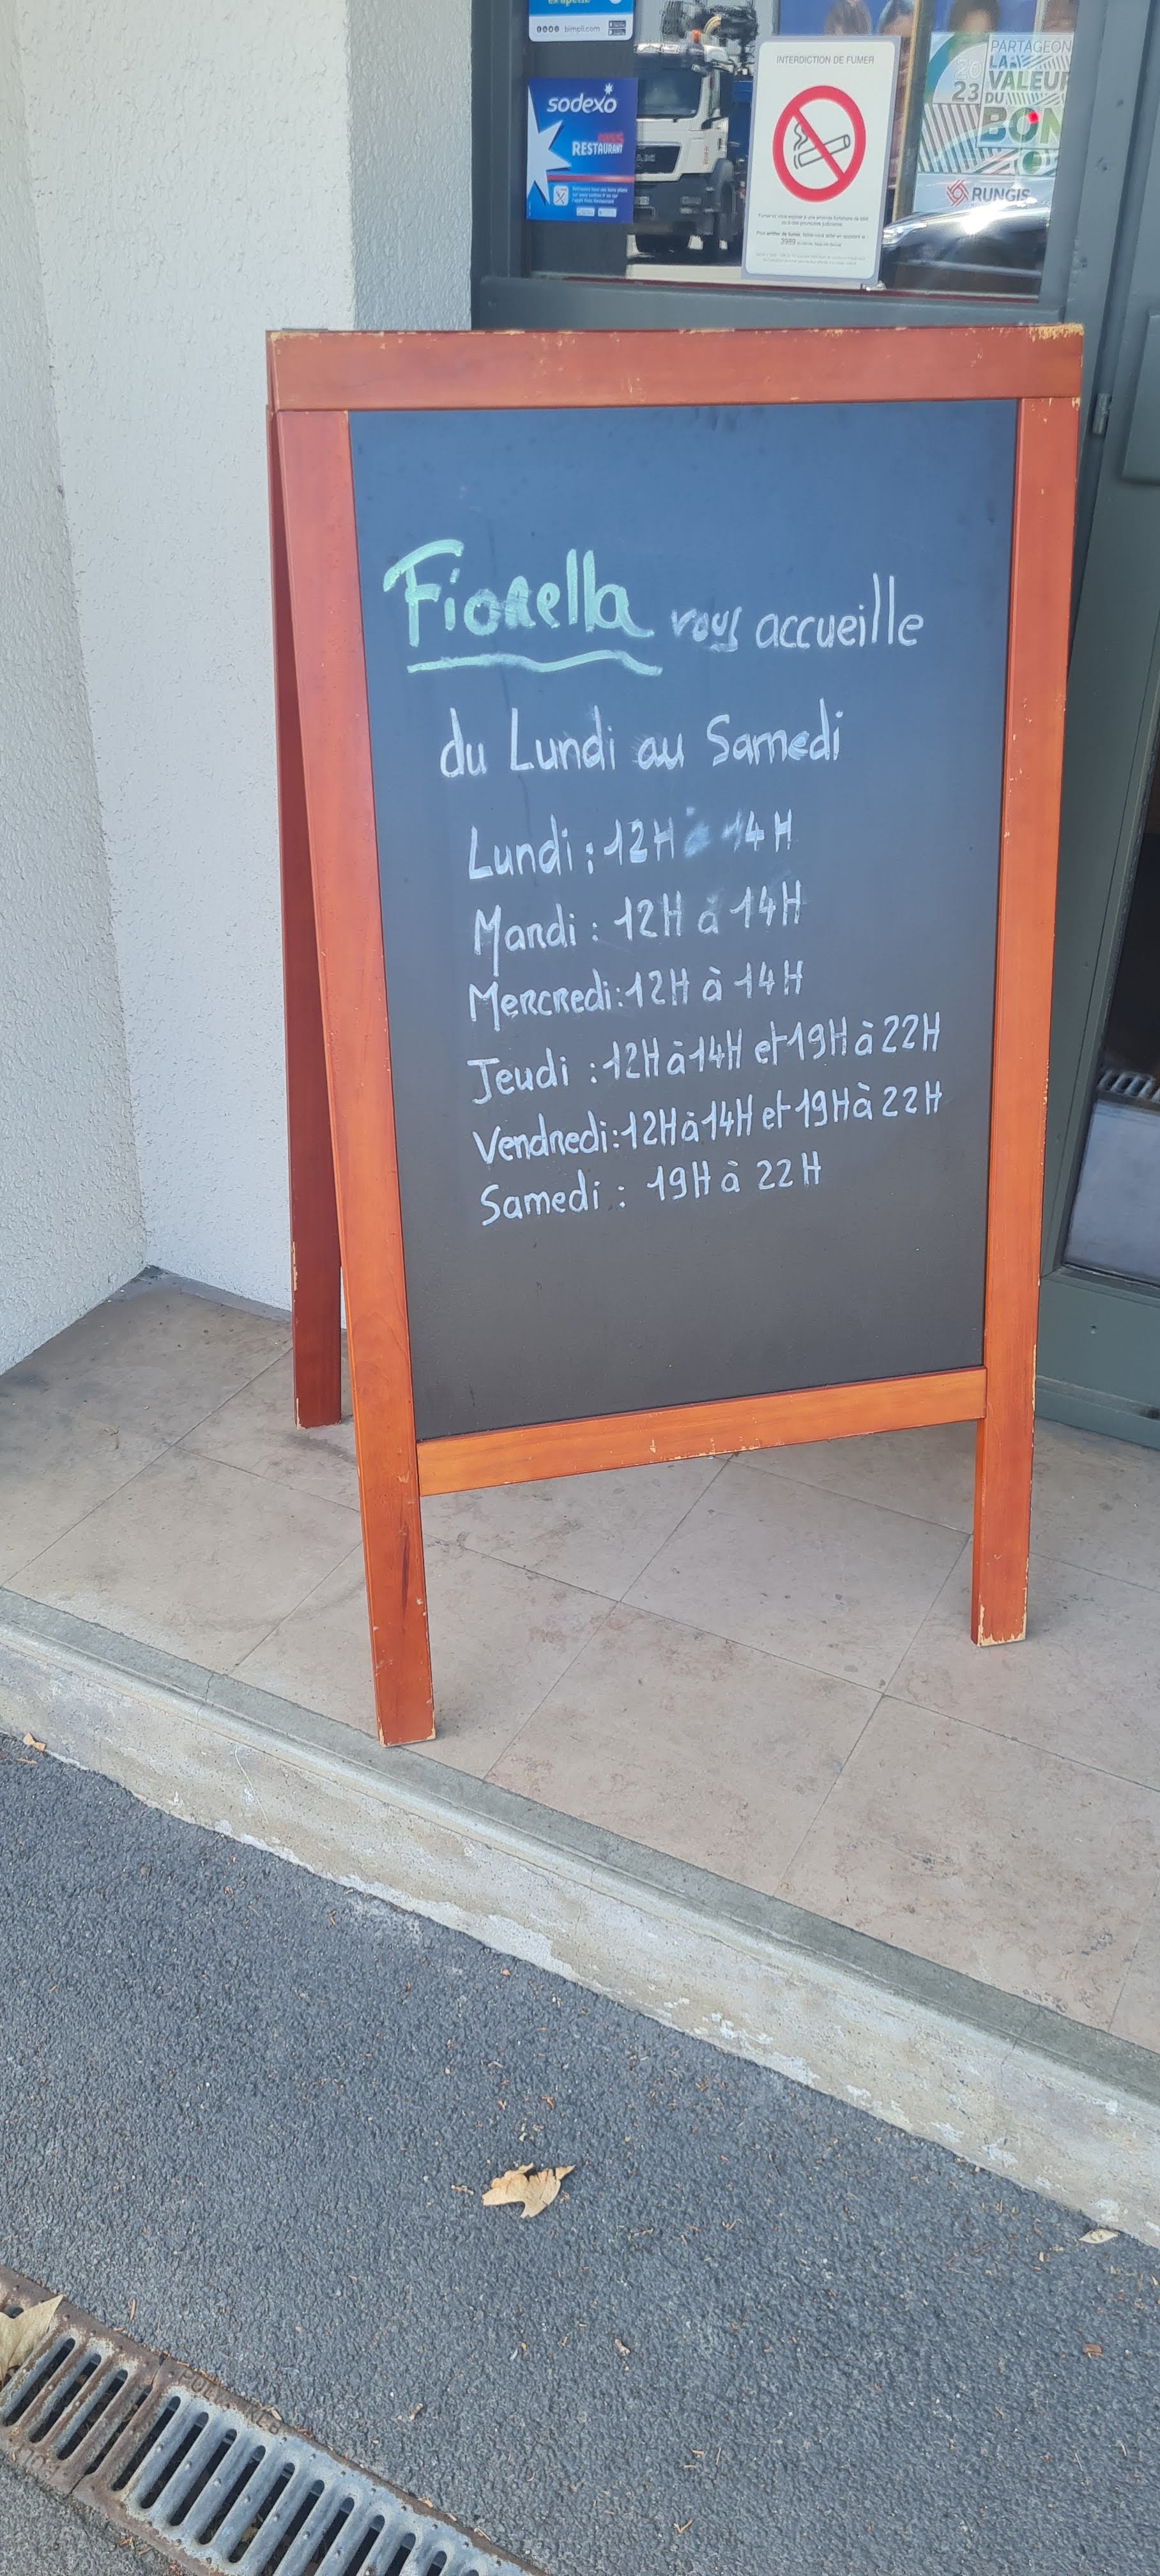 bimpli.com
sodexo
PASS
RESTAURANT
INTERDICTION DE FUMER
3989
PARTAGEON
LA
VALEUR
DU
BON
2023
RUNGIS
Fiorella vous accueille
du Lundi au Samedi
Lundi : 12H à 14H
Mardi : 12H à 14H
Mercredi : 12H à 14H
Jeudi : 12H à 14H et 19H à 22H
Vendredi : 12H à 14H et 19H à 22H
Samedi : 19H à 22H